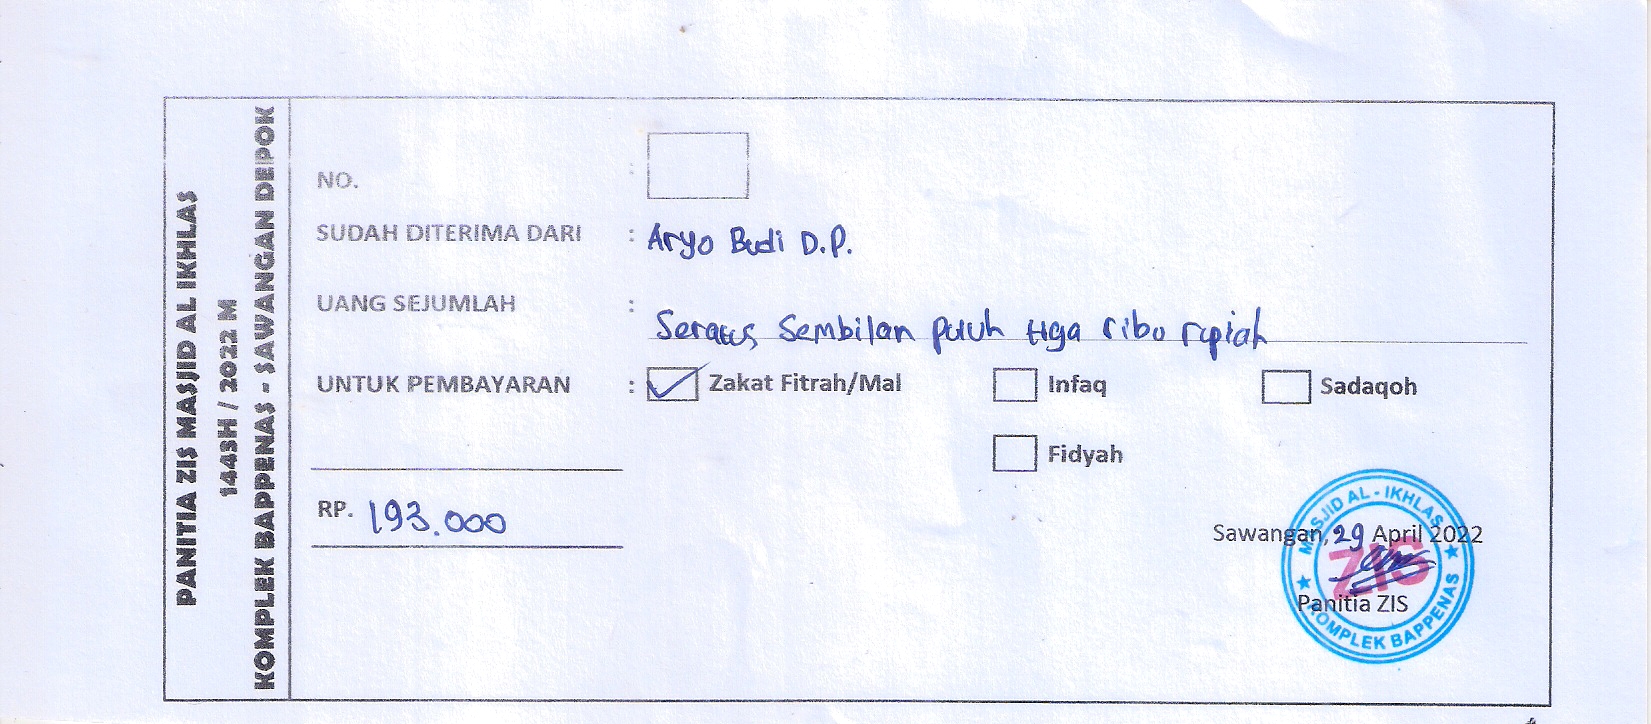 PANITIA ZIS MASJID AL IKHLAS
1443H / 2022 M
KOMPLEK BAPPENAS - SAWANGAN DEPOK
NO. :
SUDAH DITERIMA DARI : Aryo Budi D.P.
UANG SEJUMLAH :
Seratus Sembilan puluh tiga ribu rupiah
UNTUK PEMBAYARAN : Zakat Fitrah/Mal Infaq Sadaqoh
Fidyah
RP. 193.000
Sawangan, 29 April 2022
MASJID AL - IKHLAS
ZIS
Panitia ZIS
KOMPLEK BAPPENAS